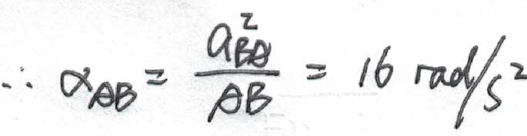 ∴ α_AB = a_BA^2 / AB = 16 rad/s²